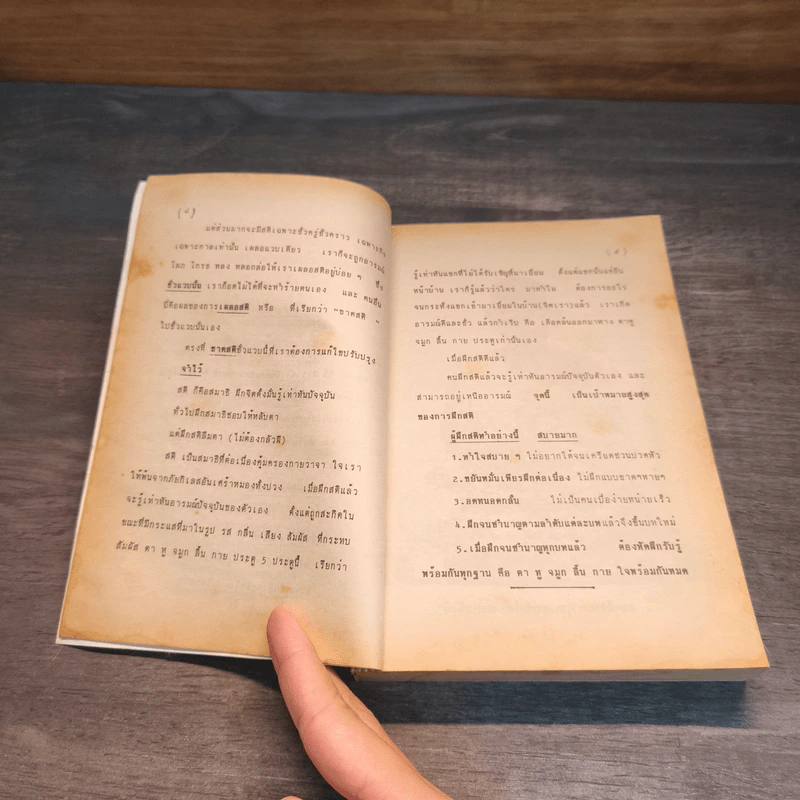 แต่ส่วนมากจะมีสติเฉพาะชั่วครู่ชั่วคราว เฉพาะกิจ
เฉพาะกาลเท่านั้น เผลอแวบเดียว เราก็จะถูกอารมณ์
โลภ โกรธ หลง หลอกล่อให้เราเผลอสติอยู่บ่อย ๆ ซึ่ง
ชั่วแวบนั้น เราก็อดไม่ได้ที่จะทำร้ายตนเอง และ คนอื่น
นี่คือผลของการเผลอสติ หรือ ที่เรียกว่า "ขาดสติ "
ไปชั่วแวบนั่นเอง
ตรงที่ ขาดสติชั่วแวบนี้ที่เราต้องการแก้ไขปรับปรุง
จำไว้
สติ ก็คือสมาธิ ฝึกจิตตั้งมั่นรู้เท่าทันปัจจุบัน
ทั่วไปฝึกสมาธิชอบให้หลับตา
แต่ฝึกสติลืมตา (ไม่ต้องกลัวผี)
สติ เป็นสมาธิที่ต่อเนื่องคุ้มครองกายวาจา ใจเรา
ให้พ้นจากภัยกิเลสอันเศร้าหมองทั้งปวง เมื่อฝึกสติแล้ว
จะรู้เท่าทันอารมณ์ปัจจุบันของตัวเอง ตั้งแต่ถูกสะกิดใน
ขณะที่มีกระแสที่มาในรูป รส กลิ่น เสียง สัมผัส ที่กระทบ
สัมผัส ตา หู จมูก ลิ้น กาย ประตู 5 ประตูนี้ เรียกว่า
รู้เท่าทันแขกที่ไม่ได้รับเชิญที่มาเยี่ยม ตั้งแต่แขกนั้นแค่ยืน
หน้าบ้าน เราก็รู้แล้วว่าใคร มาทำไม ต้องการอะไร
จนกระทั่งแขกเข้ามาเยี่ยมในบ้าน(จิตเรา)แล้ว เราเกิด
อารมณ์ดีและชั่ว แล้วกำเริบ คือ เดือดล้นออกมาทาง ตาหู
จมูก ลิ้น กาย ประตูเก่านั่นเอง
เมื่อฝึกสติดีแล้ว
คนฝึกสติแล้วจะรู้เท่าทันอารมณ์ปัจจุบันตัวเอง และ
สามารถอยู่เหนืออารมณ์ จุดนี้ เป็นเป้าหมายสูงสุด
ของการฝึกสติ
ผู้ฝึกสติทำอย่างนี้ สบายมาก
1.ทำใจสบาย ๆ ไม่อยากได้จนเครียดชวนปวดหัว
2.ขยันหมั่นเพียรฝึกต่อเนื่อง ไม่ฝึกแบบขาดๆหายๆ
3.อดทนอดกลั้น ไม่เป็นคนเบื่อง่ายหน่ายเร็ว
4.ฝึกจนชำนาญตามลำดับแต่ละบทแล้วจึงขึ้นบทใหม่
5.เมื่อฝึกจนชำนาญทุกบทแล้ว ต้องหัดฝึกรับรู้
พร้อมกันทุกฐาน คือ ตา หู จมูก ลิ้น กาย ใจพร้อมกันหมด